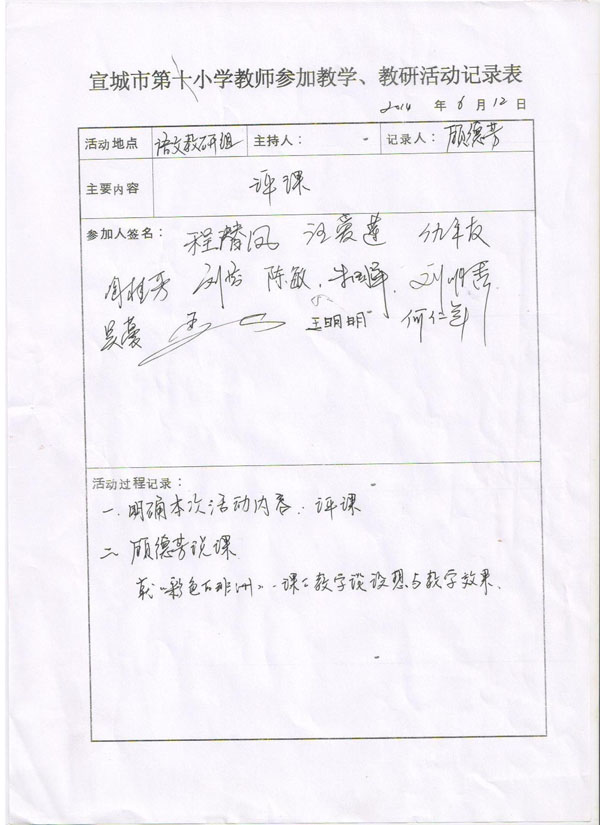 宣城市第十小学教师参加教学、教研活动记录表
2014 年 6 月 12 日
活动地点 语文教研组 主持人： 记录人： 顾德芳
主要内容 评课
参加人签名： 程 凤 汪爱莲 仇年友
周桂芳 刘 陈敏
吴蔓 王明明 何仁
活动过程记录：
一.明确本次活动内容.评课
二 顾德芳说课
就《彩色的非洲》一课的教学谈设想与教学效果.